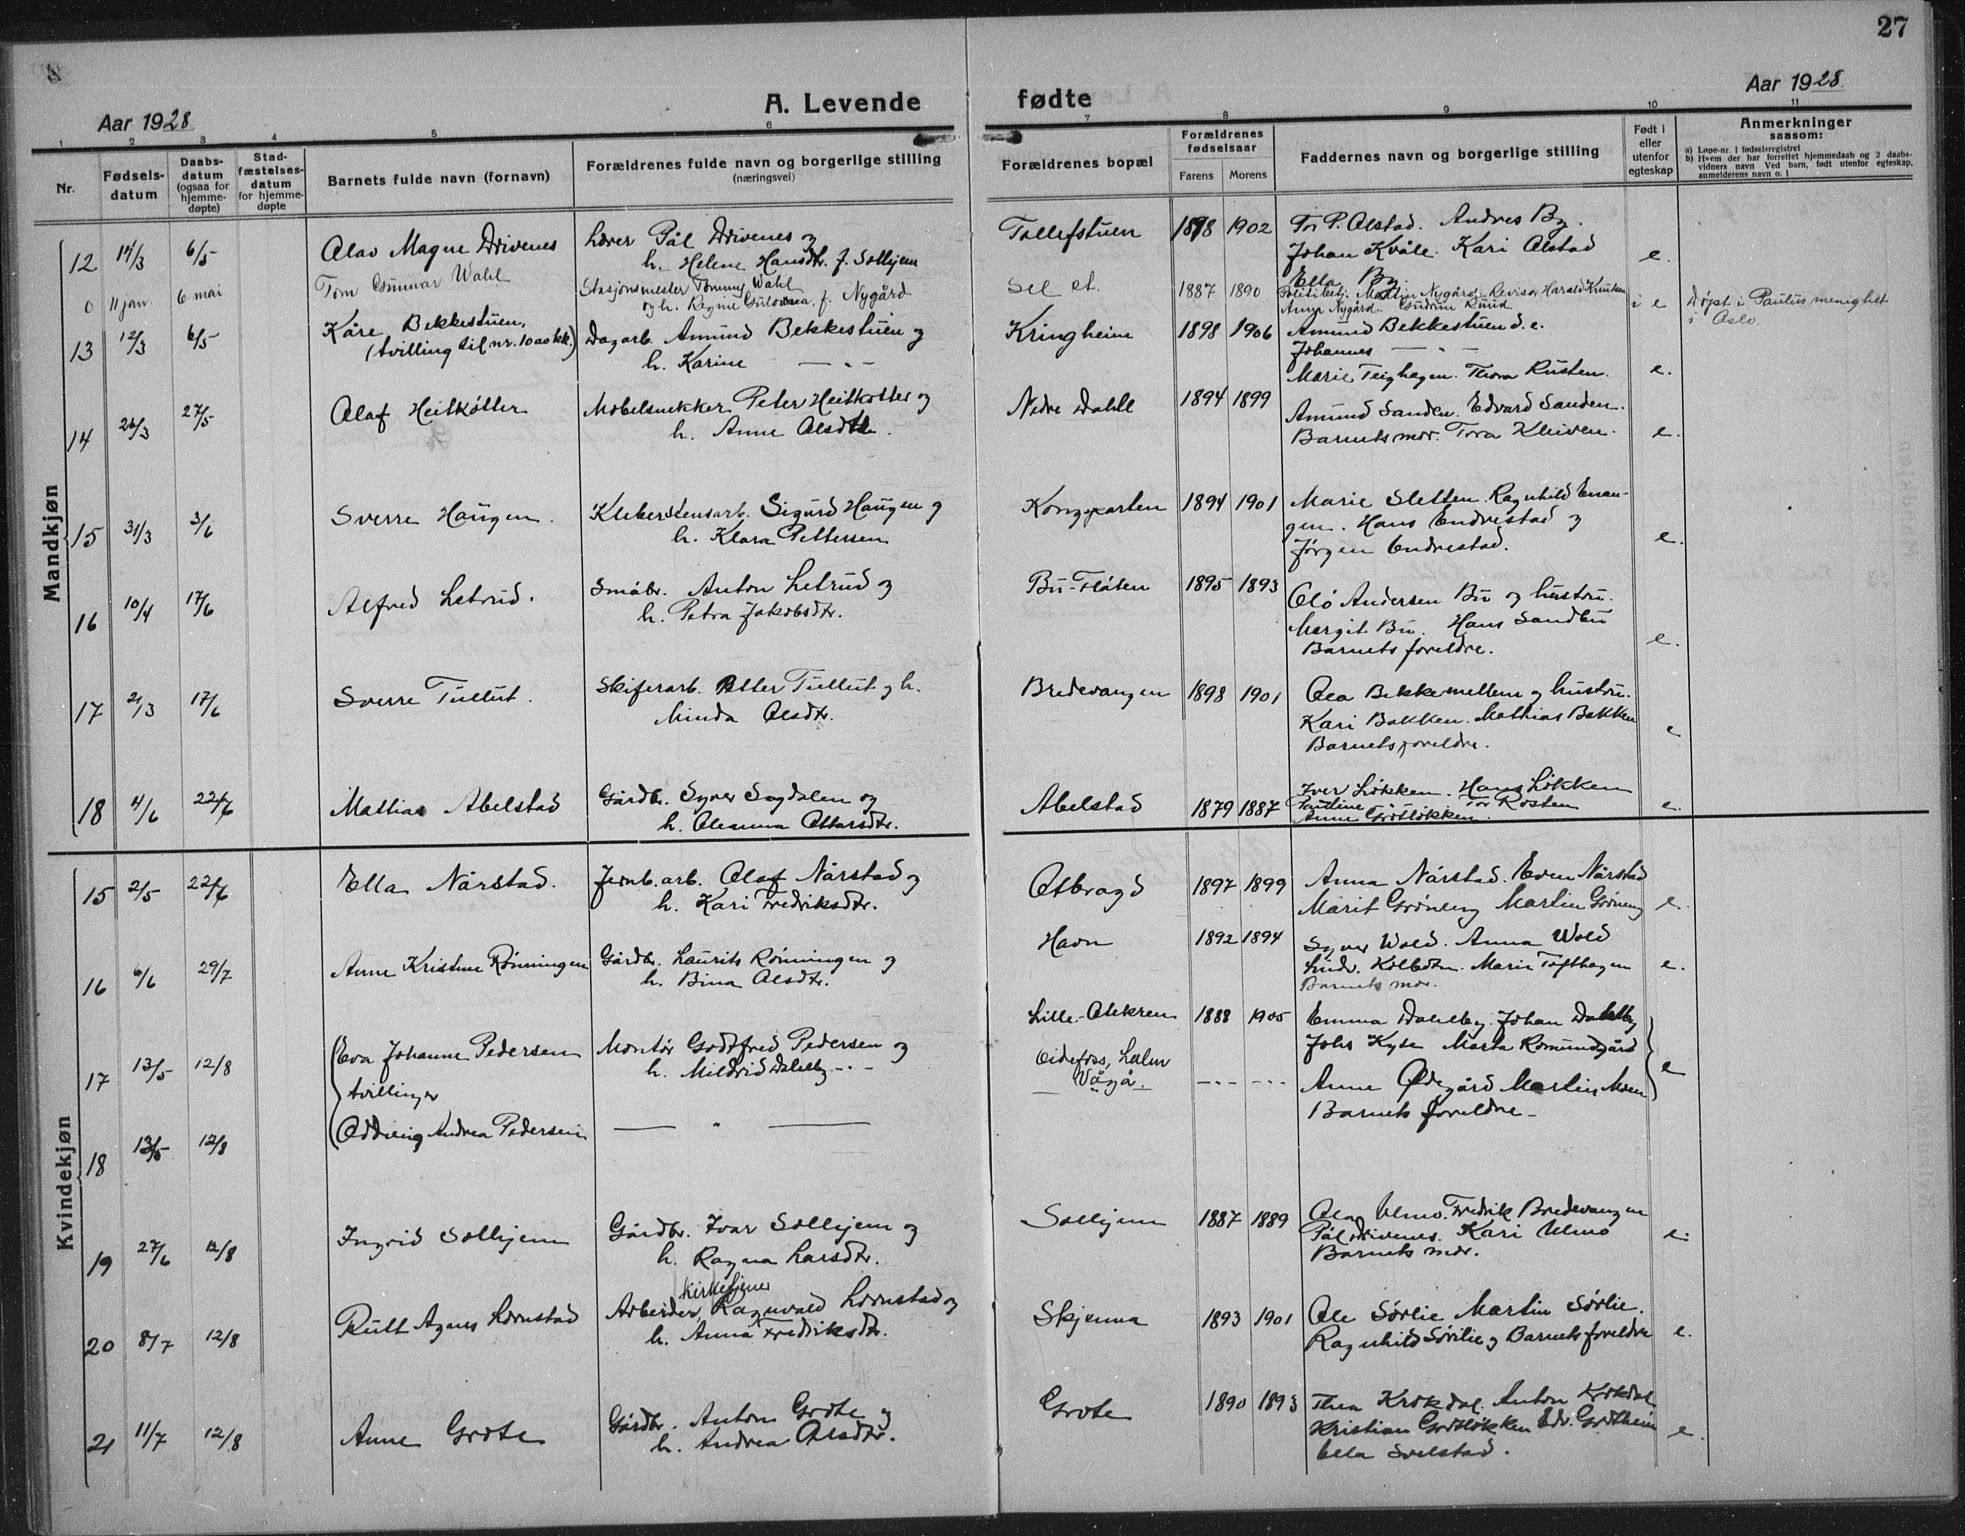 27
Aar 1928
A. Levende
fødte
Aar 1928
1 2 3 4 5 6 7 8 9 10 11
Nr.
Fødsels-
datum
Daabs-
datum
(ogsaa for
hjemme-
døpte)
Stad-
fæstelses-
datum
for hjemme-
døpte
Barnets fulde navn (fornavn)
Forældrenes fulde navn og borgerlige stilling
(næringsvei)
Forældrenes bopæl
Forældrenes
fødselsaar
Farens Morens
Faddernes navn og borgerlige stilling
Født i
eller
utenfor
egteskap
Anmerkninger
saasom:
a) Løpe-nr. i fødselsregistret
b) Hvem der har forrettet hjemmedaab og 2 daabs-
vidners navn Ved barn, født utenfor egteskap,
anmelderens navn o. l
Mandkjøn
12 14/3 6/5 Olav Magne Drivenes Lærer Pål Drivenes og Tollefstuen 1898 1902 Tor P. Olstad. Andres By.
h. Helene Hansdtr. f. Solhjem Johan Kvåle. Kari Olstad e.
Ella By
0 11 jan. 6 mai Tom Gunnar Wahl Stasjonsmester Tommy Wahl Sel st. 1887 1890 Politibetj. Martin Nygård Revisor Harald Knutsen
og h. Regine f. Nygård Anna Nygård Gudrun Ruud i e Døpt i Paulus menighet
i Oslo
13 12/3 6/5 Kåre Bekkestuen, Dagarb. Amund Bekkestuen og Kringheim 1898 1906 Amund Bekkestuen d. e.
(tvilling til nr. 10 ao kk.) h. Karine — " — Johannes — " —
Marie Teighagen. Thora Rusten. e.
14 26/3 27/5 Olaf Heitkøtter Møbelsnekker Peter Heitkøtter og Nedre Dahle 1894 1899 Amund Sanden. Edvard Sanden.
h. Anne Olsdtr. Barnets mor. Tora Kleiven. e.
15 31/3 3/6 Sverre Haugen. Kleberstensarb. Sigurd Haugen og Kongsparten 1894 1901 Marie Sletten. Ragnhild Enan-
h. Klara Pettersen gen. Hans Endrestad og
Jørgen Endrestad. e.
16 10/4 17/6 Alfred Letrud. Småbr. Anton Letrud og Bu-Fløten 1895 1893 Ole Andersen Bu og hustru.
h. Petra Jakobsdtr. Margit Bu. Hans Sandbu
Barnets foreldre. e.
17 2/3 17/6 Sverre Tullut. Skiferarb. Petter Tullut og h. Bredevangen 1898 1901 Ola Bekkemellem og hustru.
Minda Olsdtr. Kari Bakken. Mathias Bakken
Barnets foreldre. e
18 4/6 22/6 Mathias Abelstad Gårdbr. Syver Sagdalen og Abelstad 1879 1887 Iver Løkken. Hans Løkken
h. Oleanna Ottarsdtr. Pauline Tor Rosten
Anne Grøtløkken. e.
Kvindekjøn
15 2/5 22/6 Ella Nårstad. Jernb.arb. Olaf Nårstad og Ottbragd 1897 1899 Anna Nårstad. Even Nårstad
h. Kari Fredriksdtr. Marit Grøneng Martin Grøneng e.
16 6/6 29/7 Anne Kristine Rønningen Gårdbr. Laurits Rønningen og Havn 1892 1894 Syver Wold. Anna Wold
h. Bina Olsdtr. Marie Tofthagen e.
Barnets mor.
17 13/5 12/8 Eva Johanne Pedersen Montør Godtfred Pedersen og Lille-Olekren 1888 1905 Emma Dahlby. Johan Dahlby
tvillinger h. Mildrid Dahlby — " — Eidefoss, Lalm Johs Kyte Marta Romundgård
Vågå. — " — — " — Anne Ødegård Martin Moen e
18 13/5 12/8 Oddveig Andrea Pedersen — " — Barnets foreldre —
19 27/6 12/8 Ingrid Solhjem Gårdbr. Ivar Solhjem og Solhjem 1887 1889 Ola Ulmo. Fredrik Bredevangen
h. Ragna Larsdtr. Pål Drivenes. Kari Ulmo
Barnets mor. e.
20 8/7 12/8 Rutt Agnes Lornstad kirketjener
Arbeider, Ragnvald Lornstad og Skjenna 1893 1901 Ole Sørlie Martin Sørlie.
h. Anna Fredriksdtr. Ragnhild Sørlie og Barnets foreldre e.
21 11/7 12/8 Anne Grote Gårdbr. Anton Grote og Grote 1890 1893 Thea Krokdal. Anton Krokdal
h. Andrea Olsdtr. Kristian Grøtløkken Edv. Grøtheim
Ella Solstad. e.